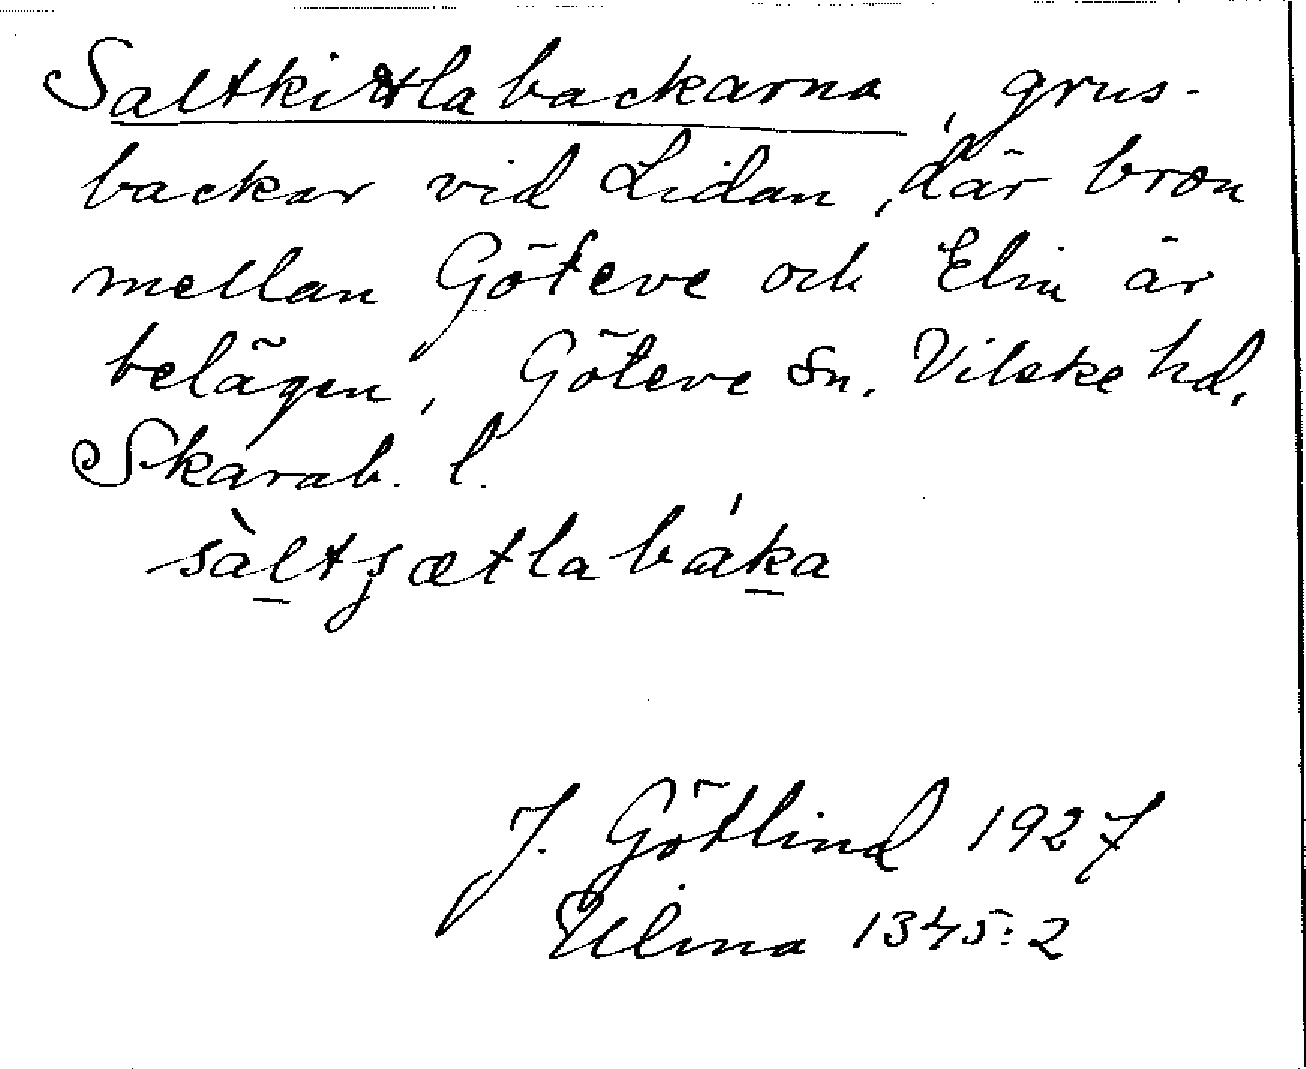 Saltkittlabackarna, grus-
backar vid Lidan, där bron
mellan Göteve och Elin är
belägen, Göteve Sn. Vilske hd,
Skarab. l.
sàltʂætlabáka
J. Götlind 1927
Ulma 1345:2